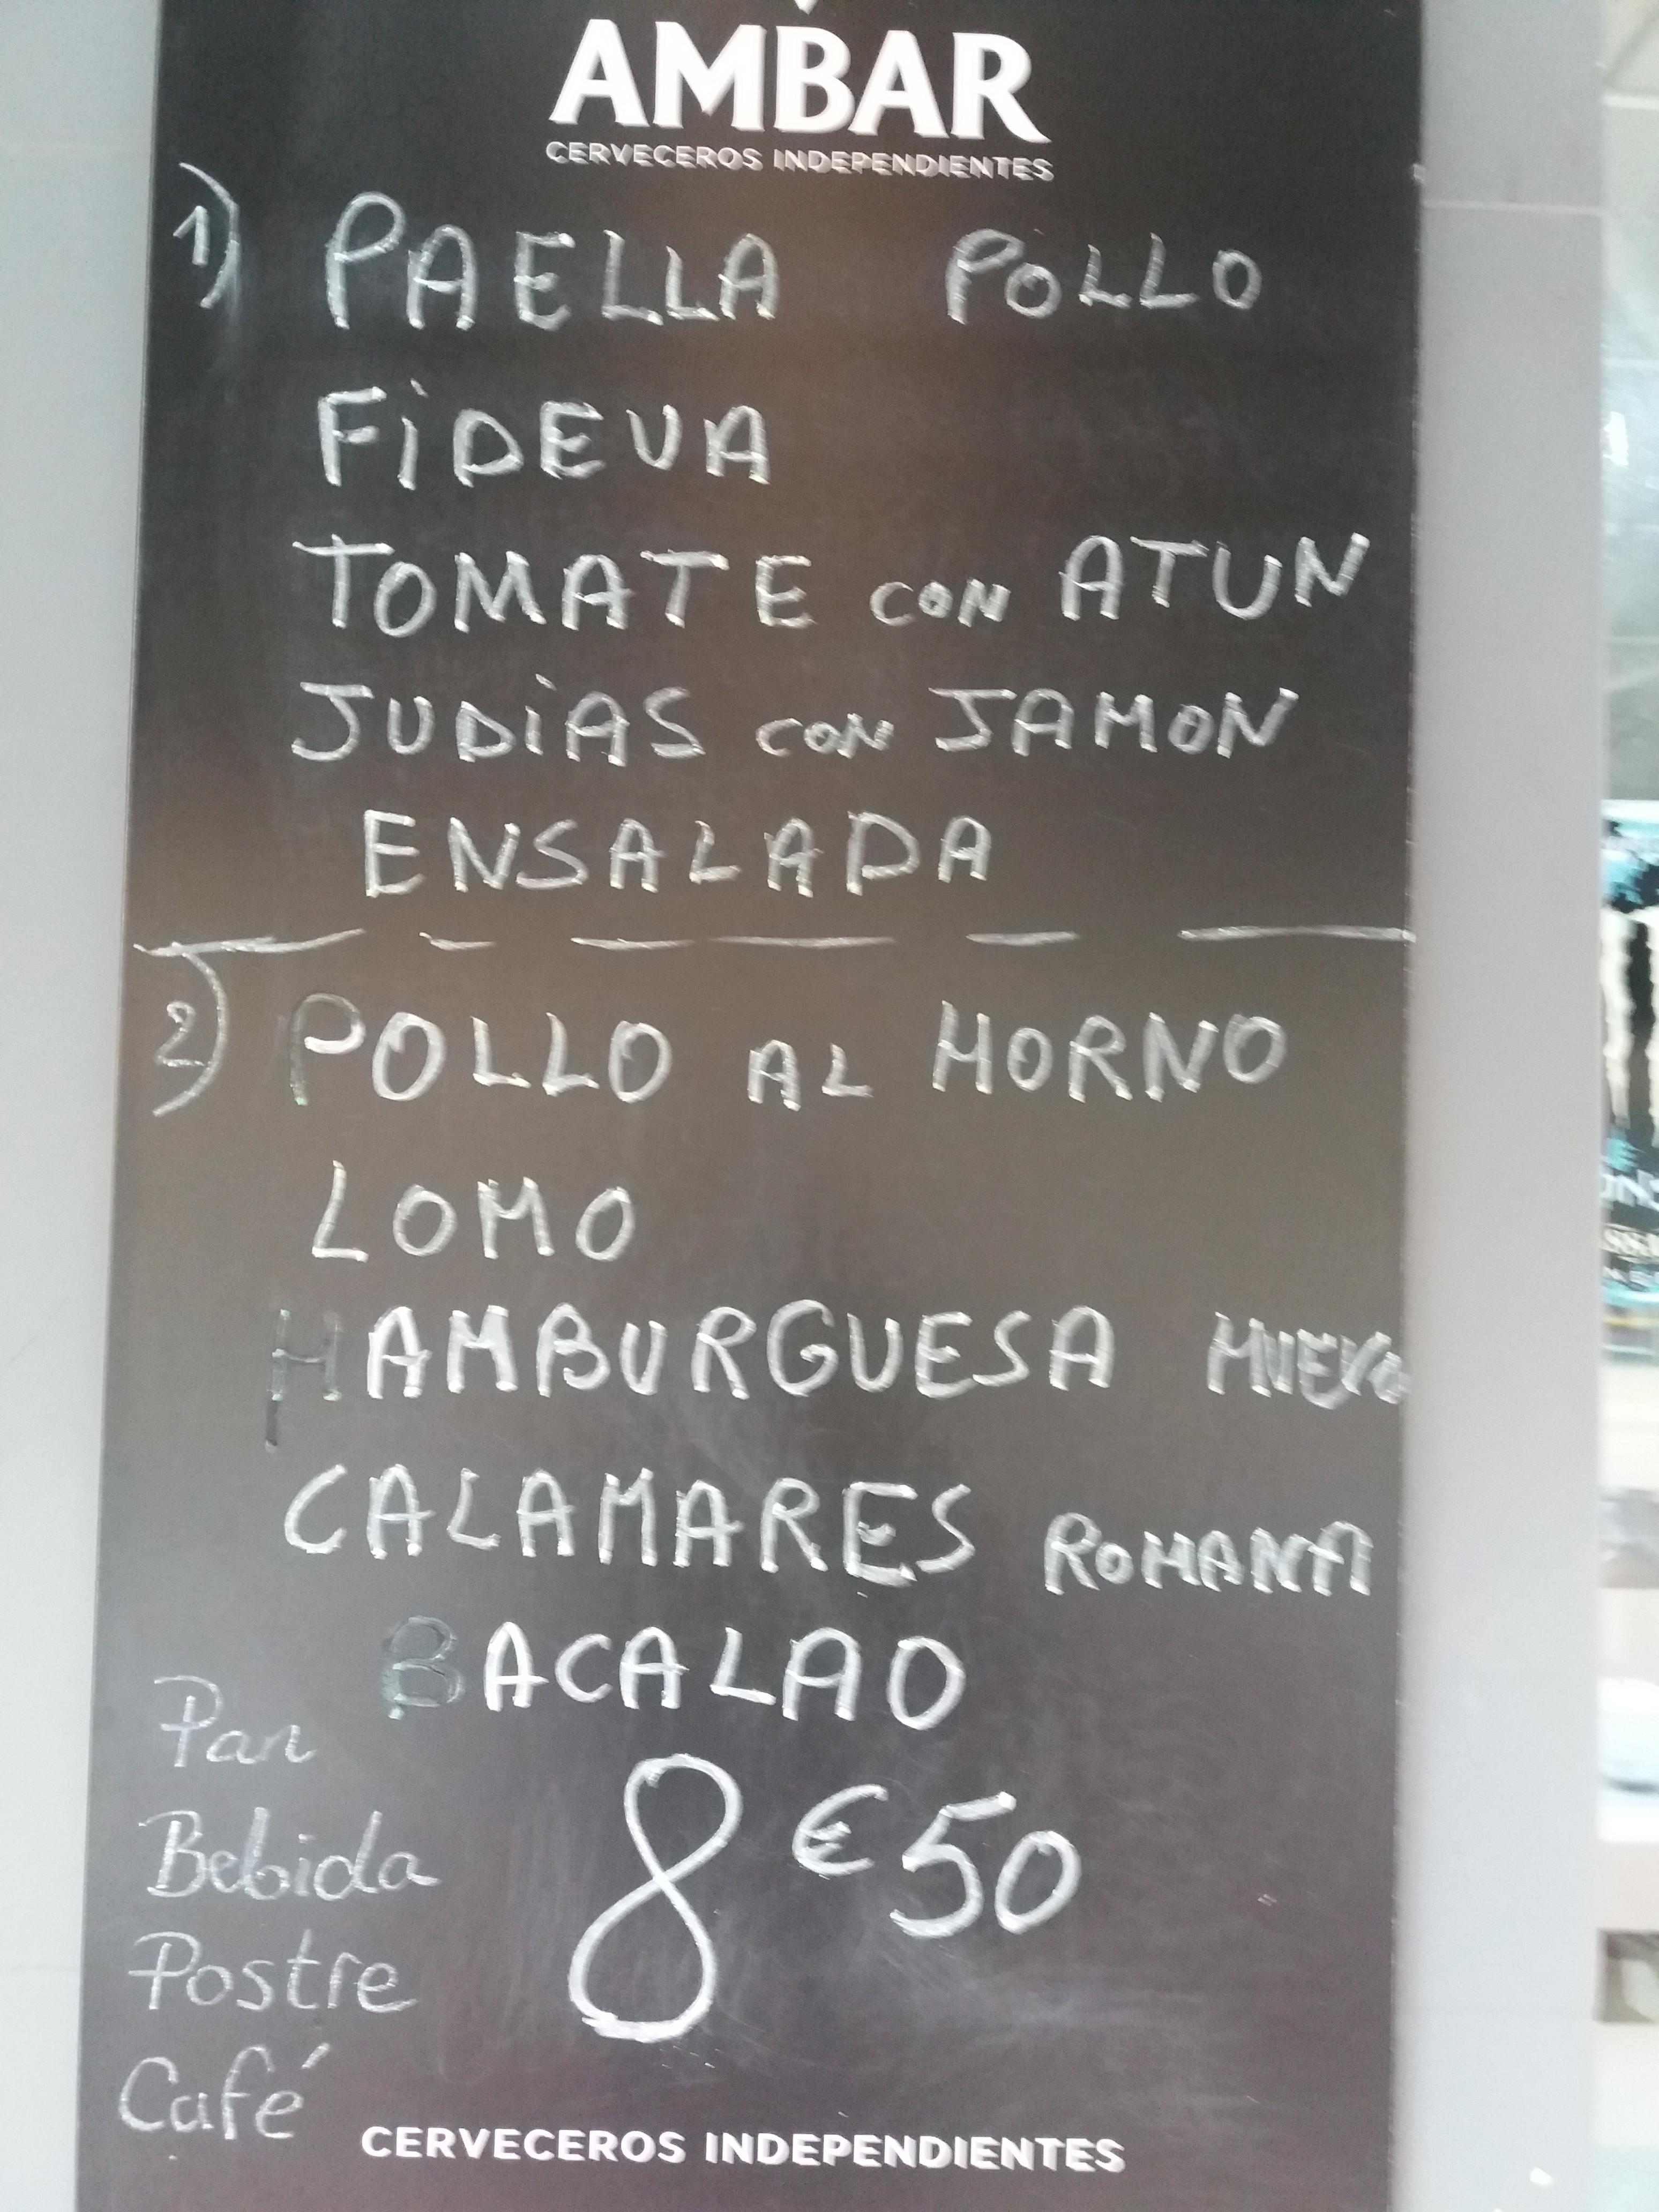 AMBAR
CERVECEROS INDEPENDIENTES
1) PAELLA POLLO
FiDEUA
TOMATE CON ATUN
JUDiAS CON JAMON
ENSALADA
2) POLLO AL HORNO
LOMO
HAMBURGUESA HUEVO
CALAMARES ROMANA
BACALAO
Pan
Bebida
Postre
Café
8€50
CERVECEROS INDEPENDIENTES